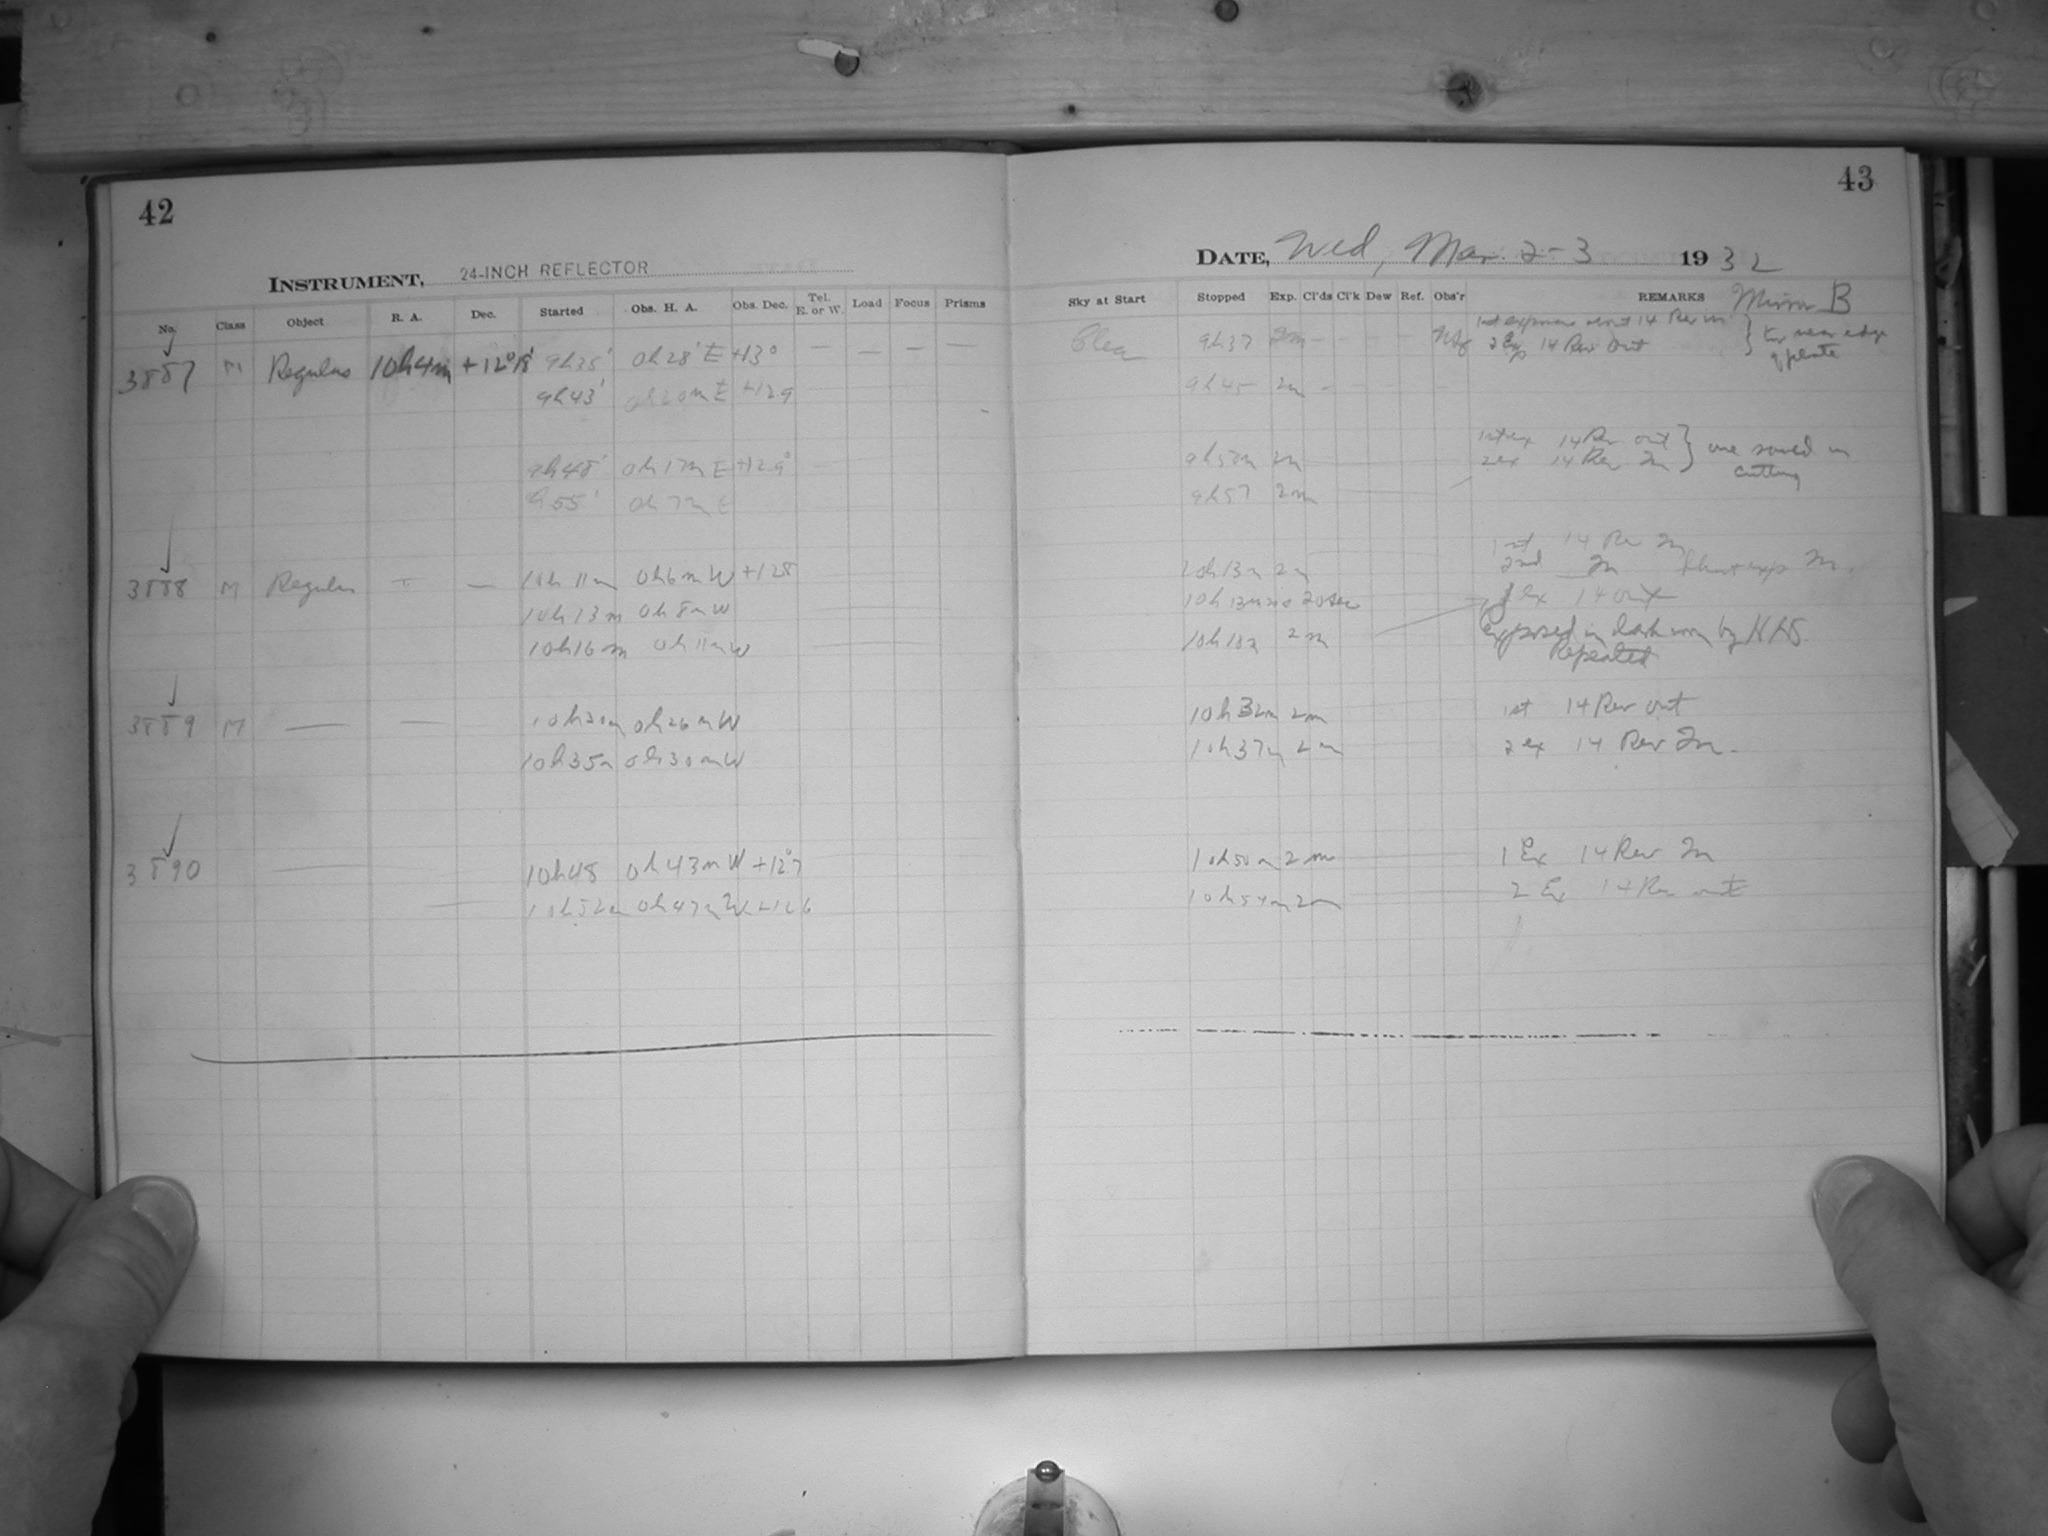 42
INSTRUMENT, 24-INCH REFLECTOR
No. Class Object R. A. Dec. Started Obs. H. A. Obs. Dec. Tel. E. or W. Load Focus Prisms
3887 M Regulus 10h4m +12°18' 9h35' 0h28' E +13°
9h43' 0h20m E +12.9
9h48' 0h17m E +12.9°
9h55' 0h7m E
3888 M Regulus — 10h11m 0h6m W +128
10h13m 0h8m W
10h16m 0h11m W
3889 M — — 10h30m 0h26m W
10h35m 0h30m W
3890 — 10h48 0h43m W +12°7
— 10h52m 0h47m W +126
43
DATE, Wed, Mar. 2-3 1932
Sky at Start Stopped Exp. Cl'ds Cl'k Dew Ref. Obs'r REMARKS Mirror B
Clear 9h37 2m 1st exposure 14 Rev in
2 Ex 14 Rev Out } too near edge of plate
9h45 2m
1st ex 14 Rev out
9h50m 2m 2 ex 14 Rev In } one saved in cutting
9h57 2m
1st 14 Rev In
10h13m 2m 2nd In
20sec 1 ex 14 out
10h18m 2m Exposed in dark room by
Repeated
10h32m 2m 1st 14 Rev out
10h37m 2m 2 ex 14 Rev In.
10h50m 2m 1 Ex 14 Rev In
10h54m 2m 2 Ex 14 Rev out